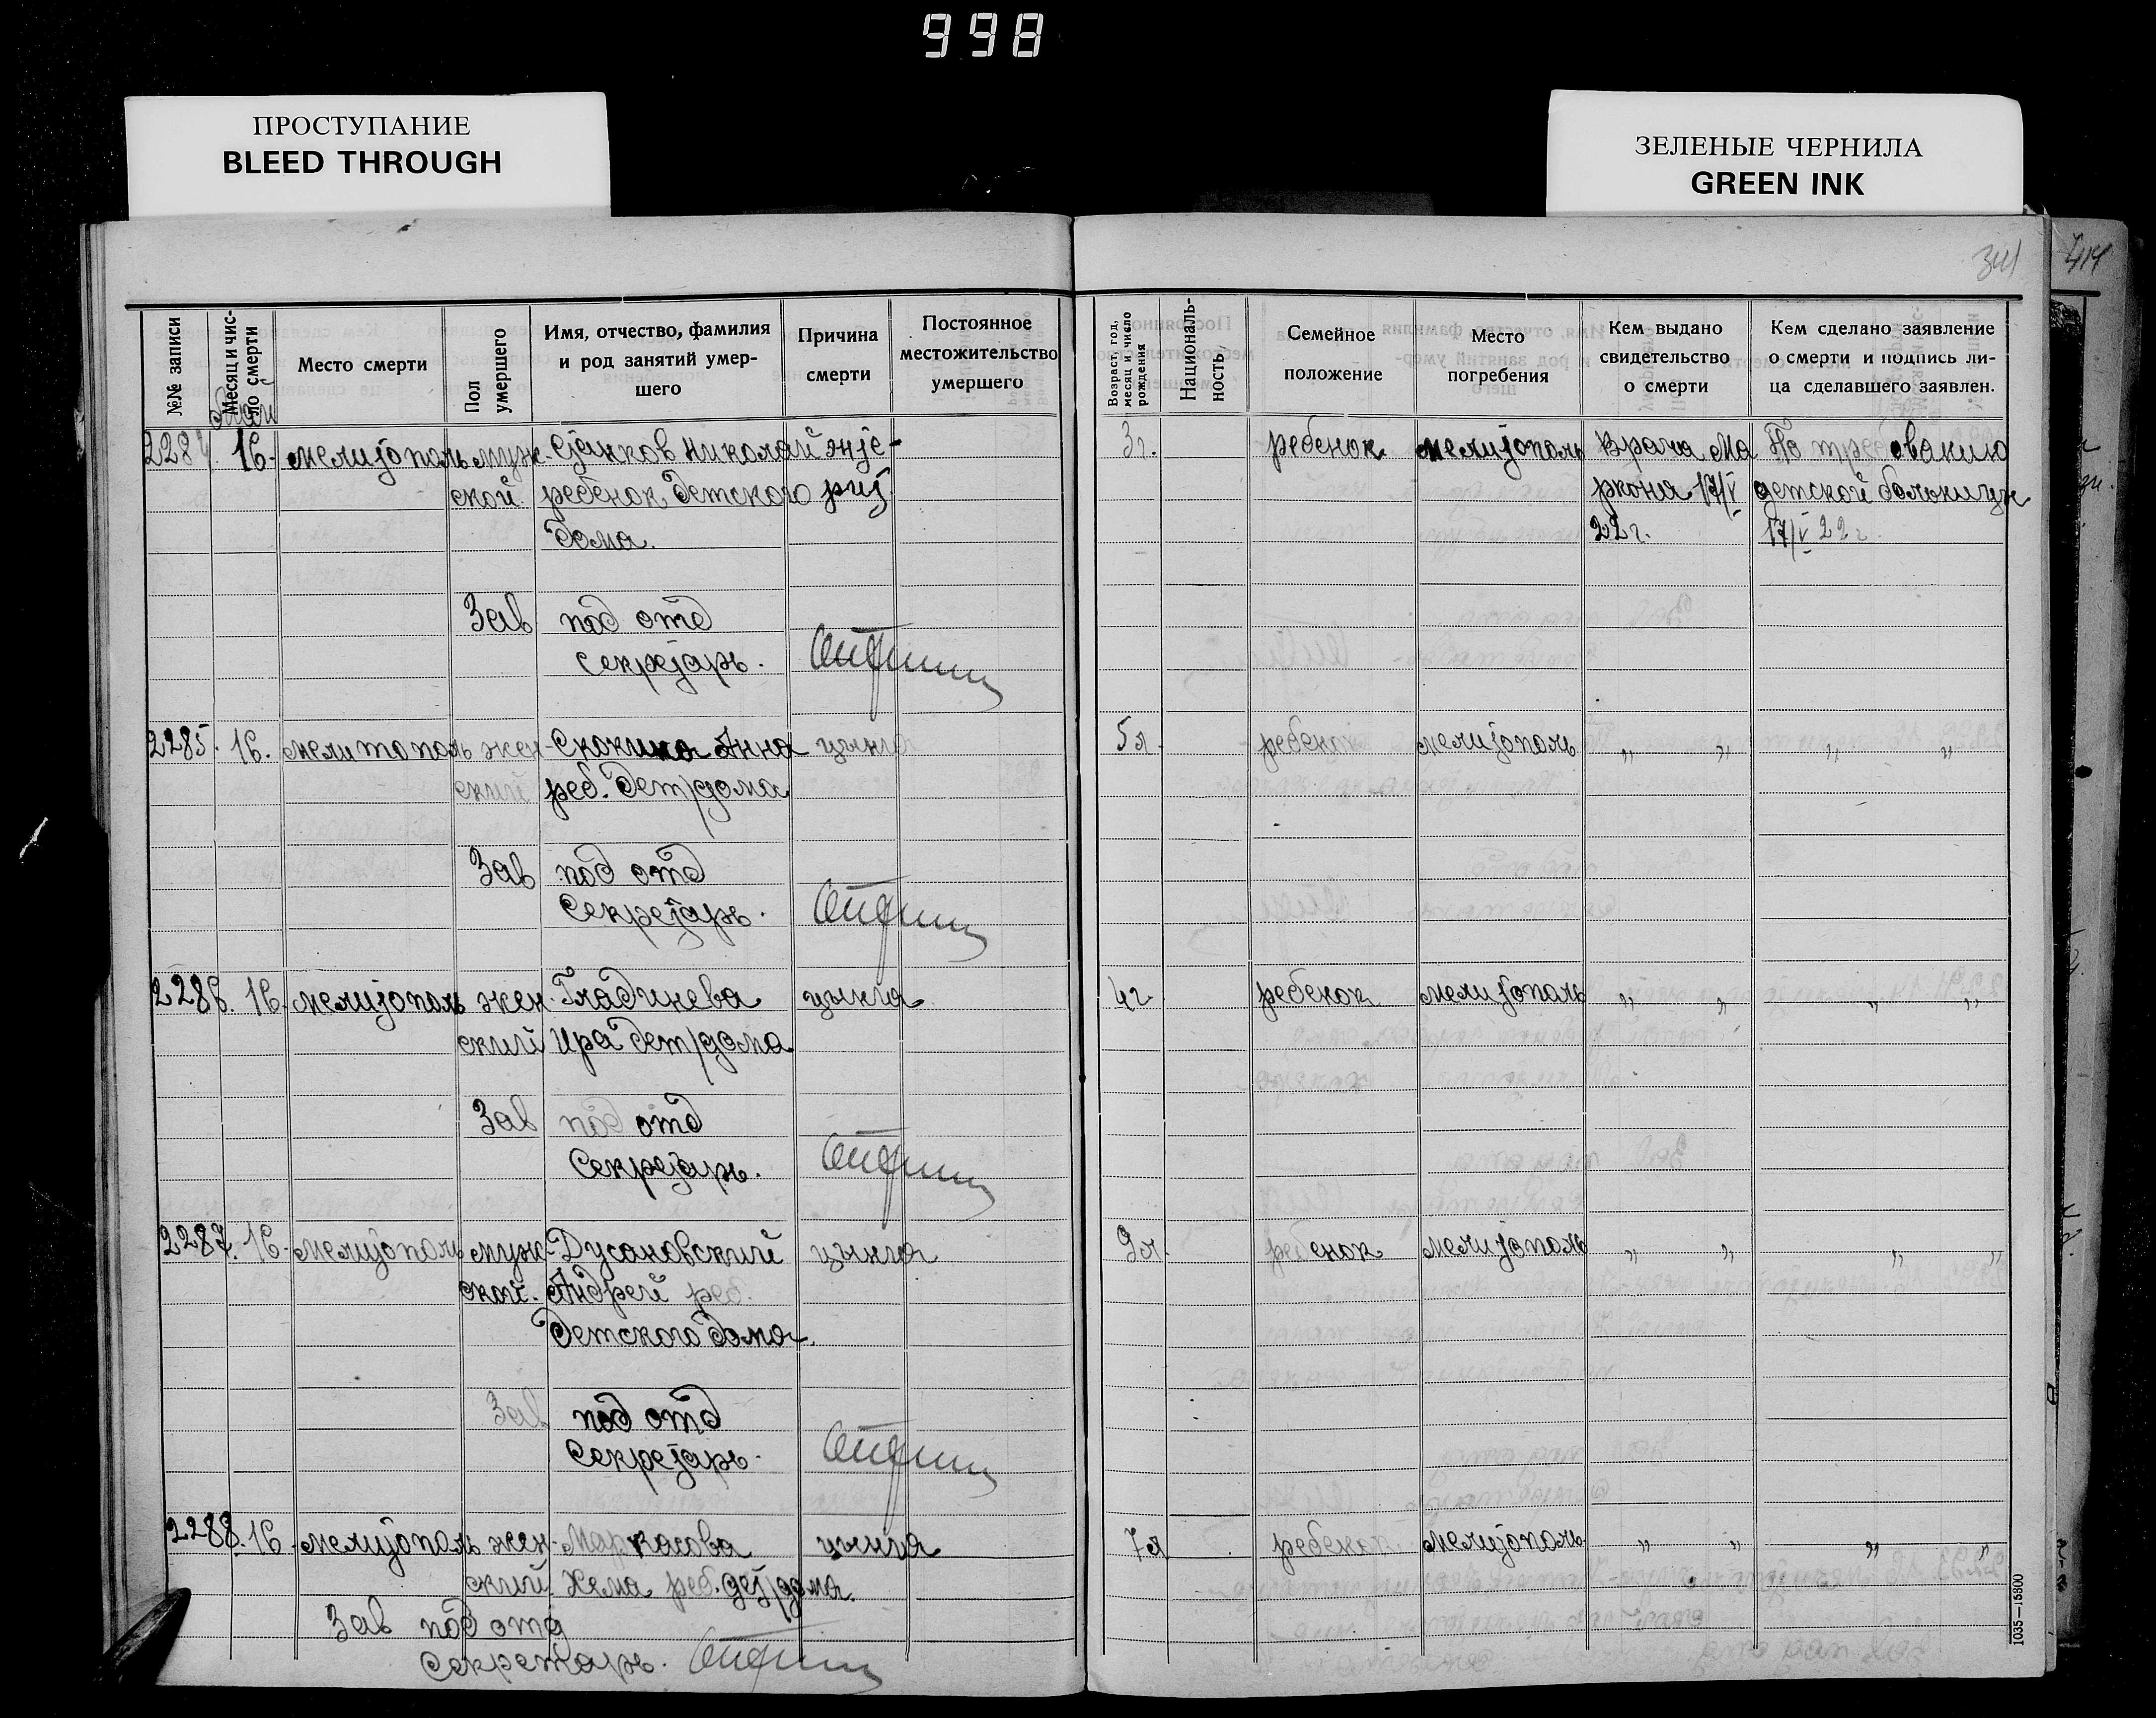 998
ПРОСТУПАНИЕ
BLEED THROUGH
ЗЕЛЕНЫЕ ЧЕРНИЛА
GREEN INK
341
414
№№ записи
Месяц и чис-
ло смерти
Место смерти
Пол
умершего
Имя, отчество, фамилия
и род занятий умер-
шего
Причина
смерти
Постоянное
местожительство
умершего
Возраст, год,
месяц и число
рождения
Националь-
ность
Семейное
положение
Место
погребения
Кем выдано
свидетельство
о смерти
Кем сделано заявление
о смерти и подпись ли-
ца сделавшего заявлен.
Май
2284. 16. Мелитополь муж- Станков Николай энте- 3г. ребенок Мелитополь Врача Ма По требованию
ской. ребенок детского рит ркона 17/V детской больницы
дома. 22г. 17/V 22г.
Зав под отд
Секретарь.
2285. 16. Мелитополь жен- Скокина Анна цынга 5л. ребенок Мелитополь „ „ „ „
ский реб. дет/дома
Зав под отд
Секретарь.
2286. 16. Мелитополь жен- Гладинева цынга 4г. ребенок Мелитополь „ „ „ „
ский Ира дет/дома
Зав под отд
Секретарь.
2287. 16. Мелитополь муж- Дусановский цынга 9л. ребенок Мелитополь „ „ „ „
ской. Андрей реб.
Детского дома.
Зав под отд
Секретарь.
2288. 16. Мелитополь жен- Маркасова цынга 7л ребенок Мелитополь „ „ „ „
ский. Хема реб. дет/дома.
Зав под отд
Секретарь.
1035—15800